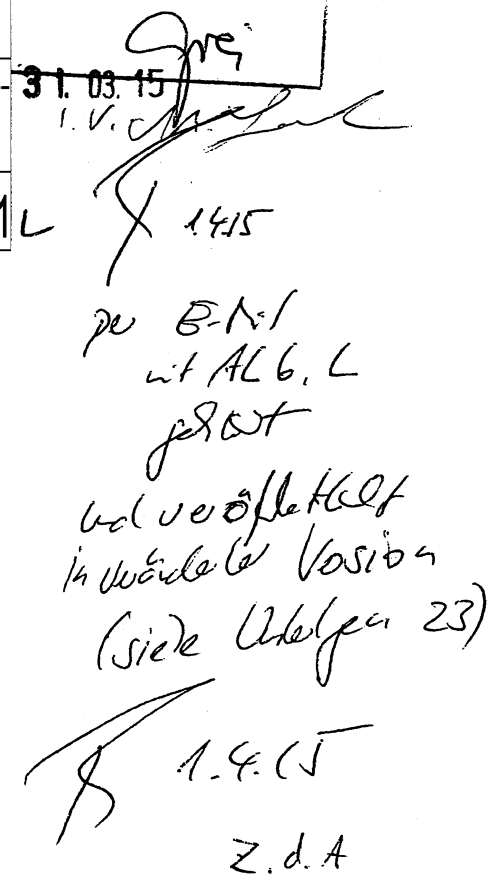 31. 03. 15
i.V.
L
1.4.15
per E-Mail
mit AL 6, L
geklärt
und veröffentlicht
in veränderter Version
(siehe Unterlagen 23)
1.4.15
z.d.A